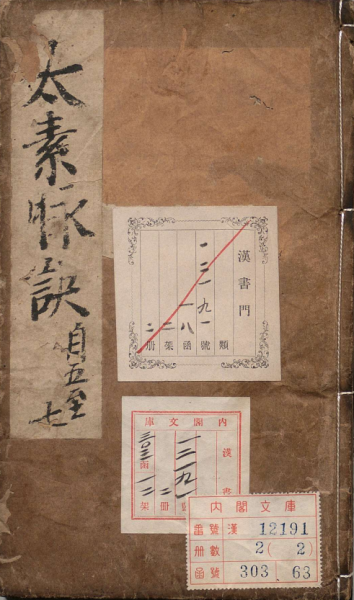 太素脉訣
貞五至七
漢書門
類
一二一九一號
一八函
二架
二冊
内閣文庫
漢書
一二一九一號
二冊
三〇三函
架
内閣文庫
番號 漢 12191
冊數 2 ( 2 )
函號 303 63